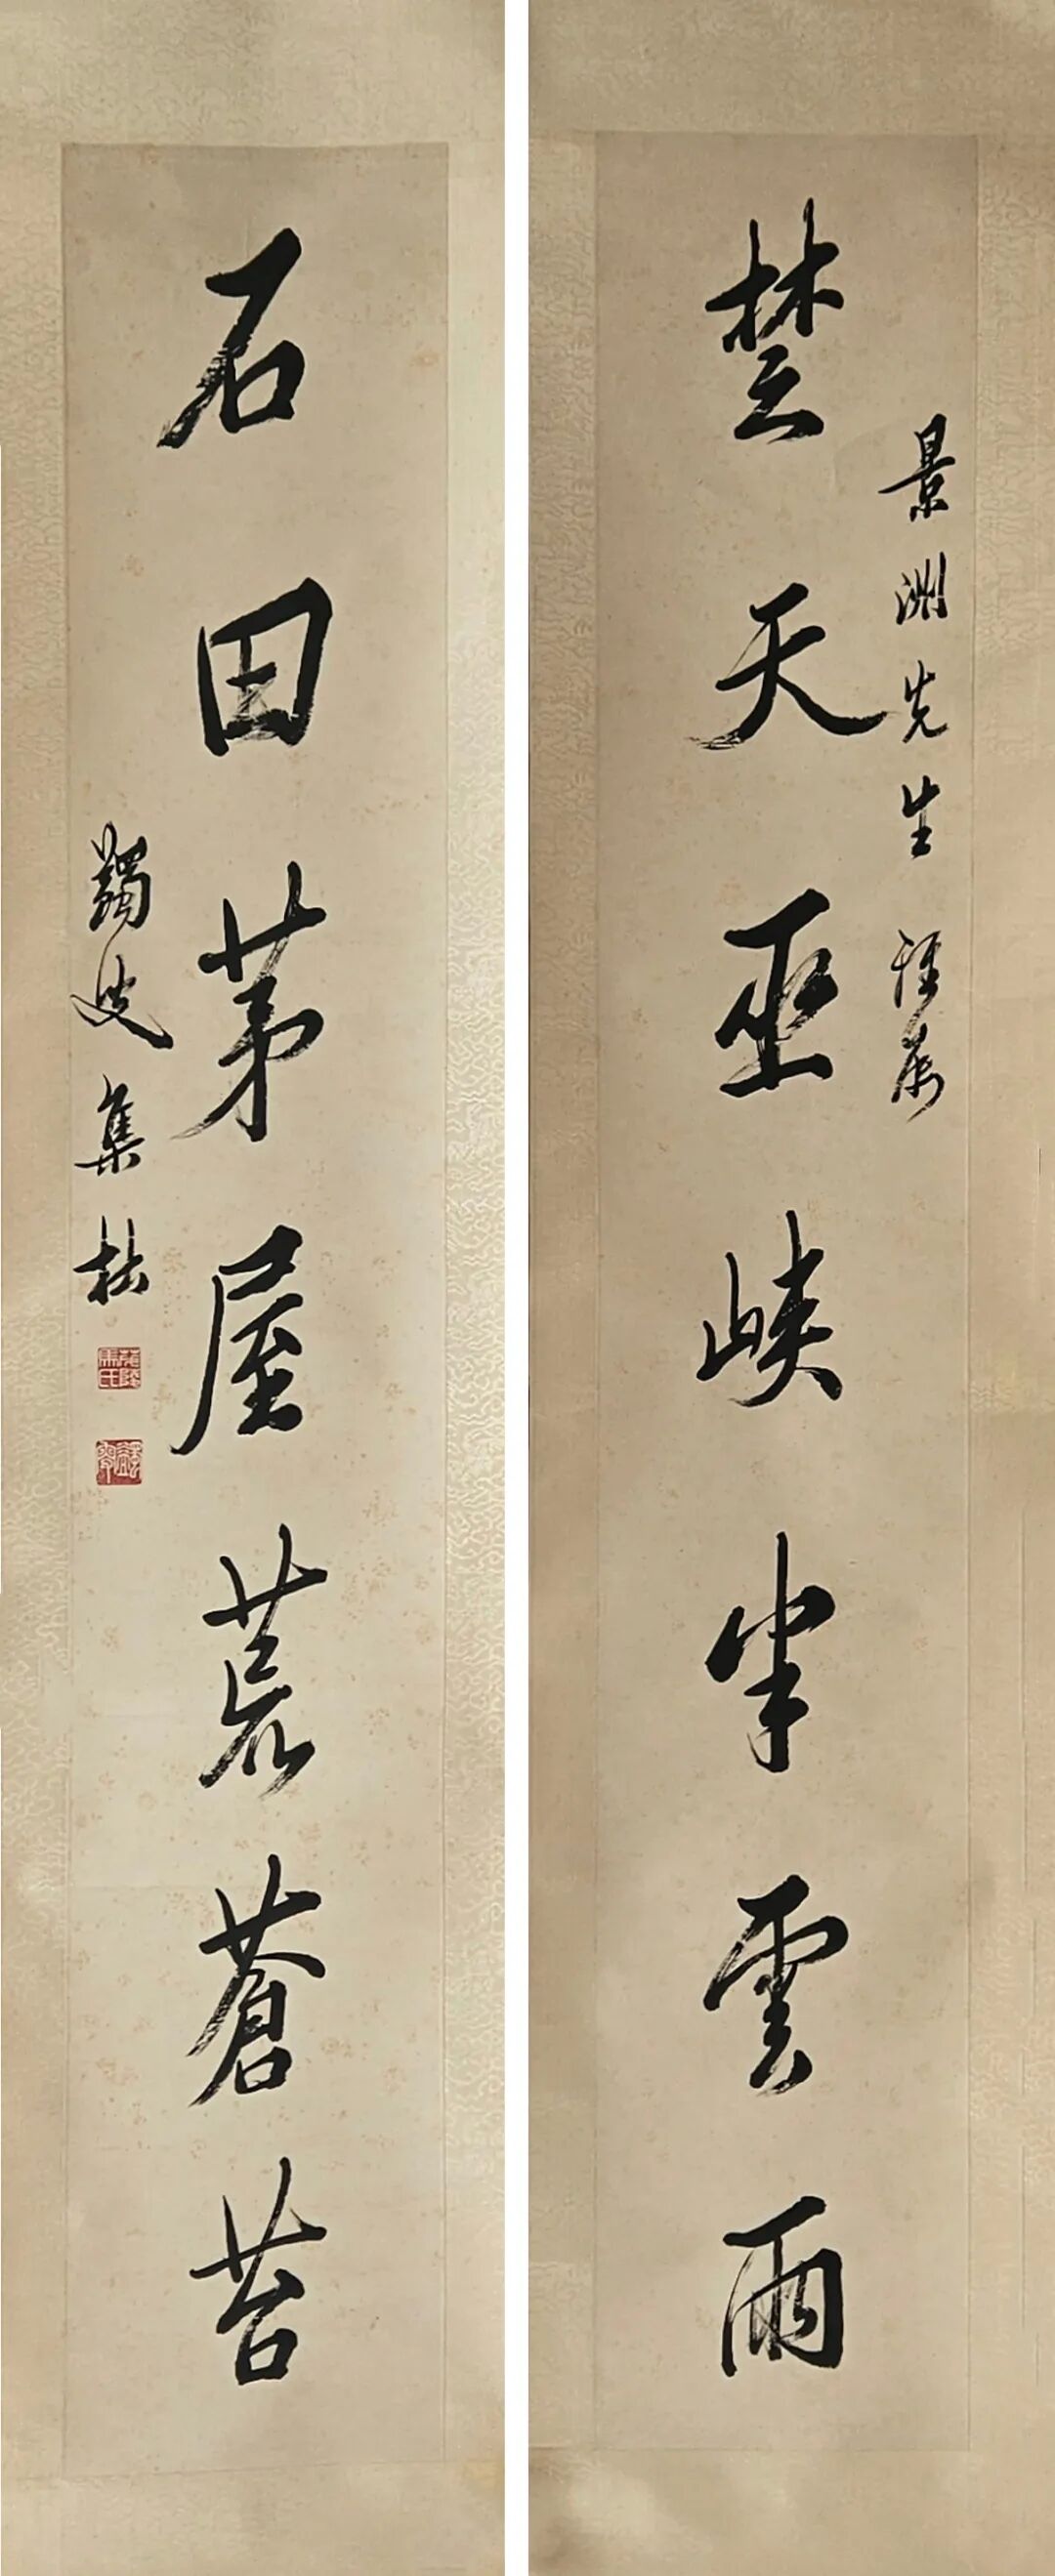 景洲先生撰属
楚天巫峡半雲雨
石田茅屋荒蒼苔
蠲叟集杜